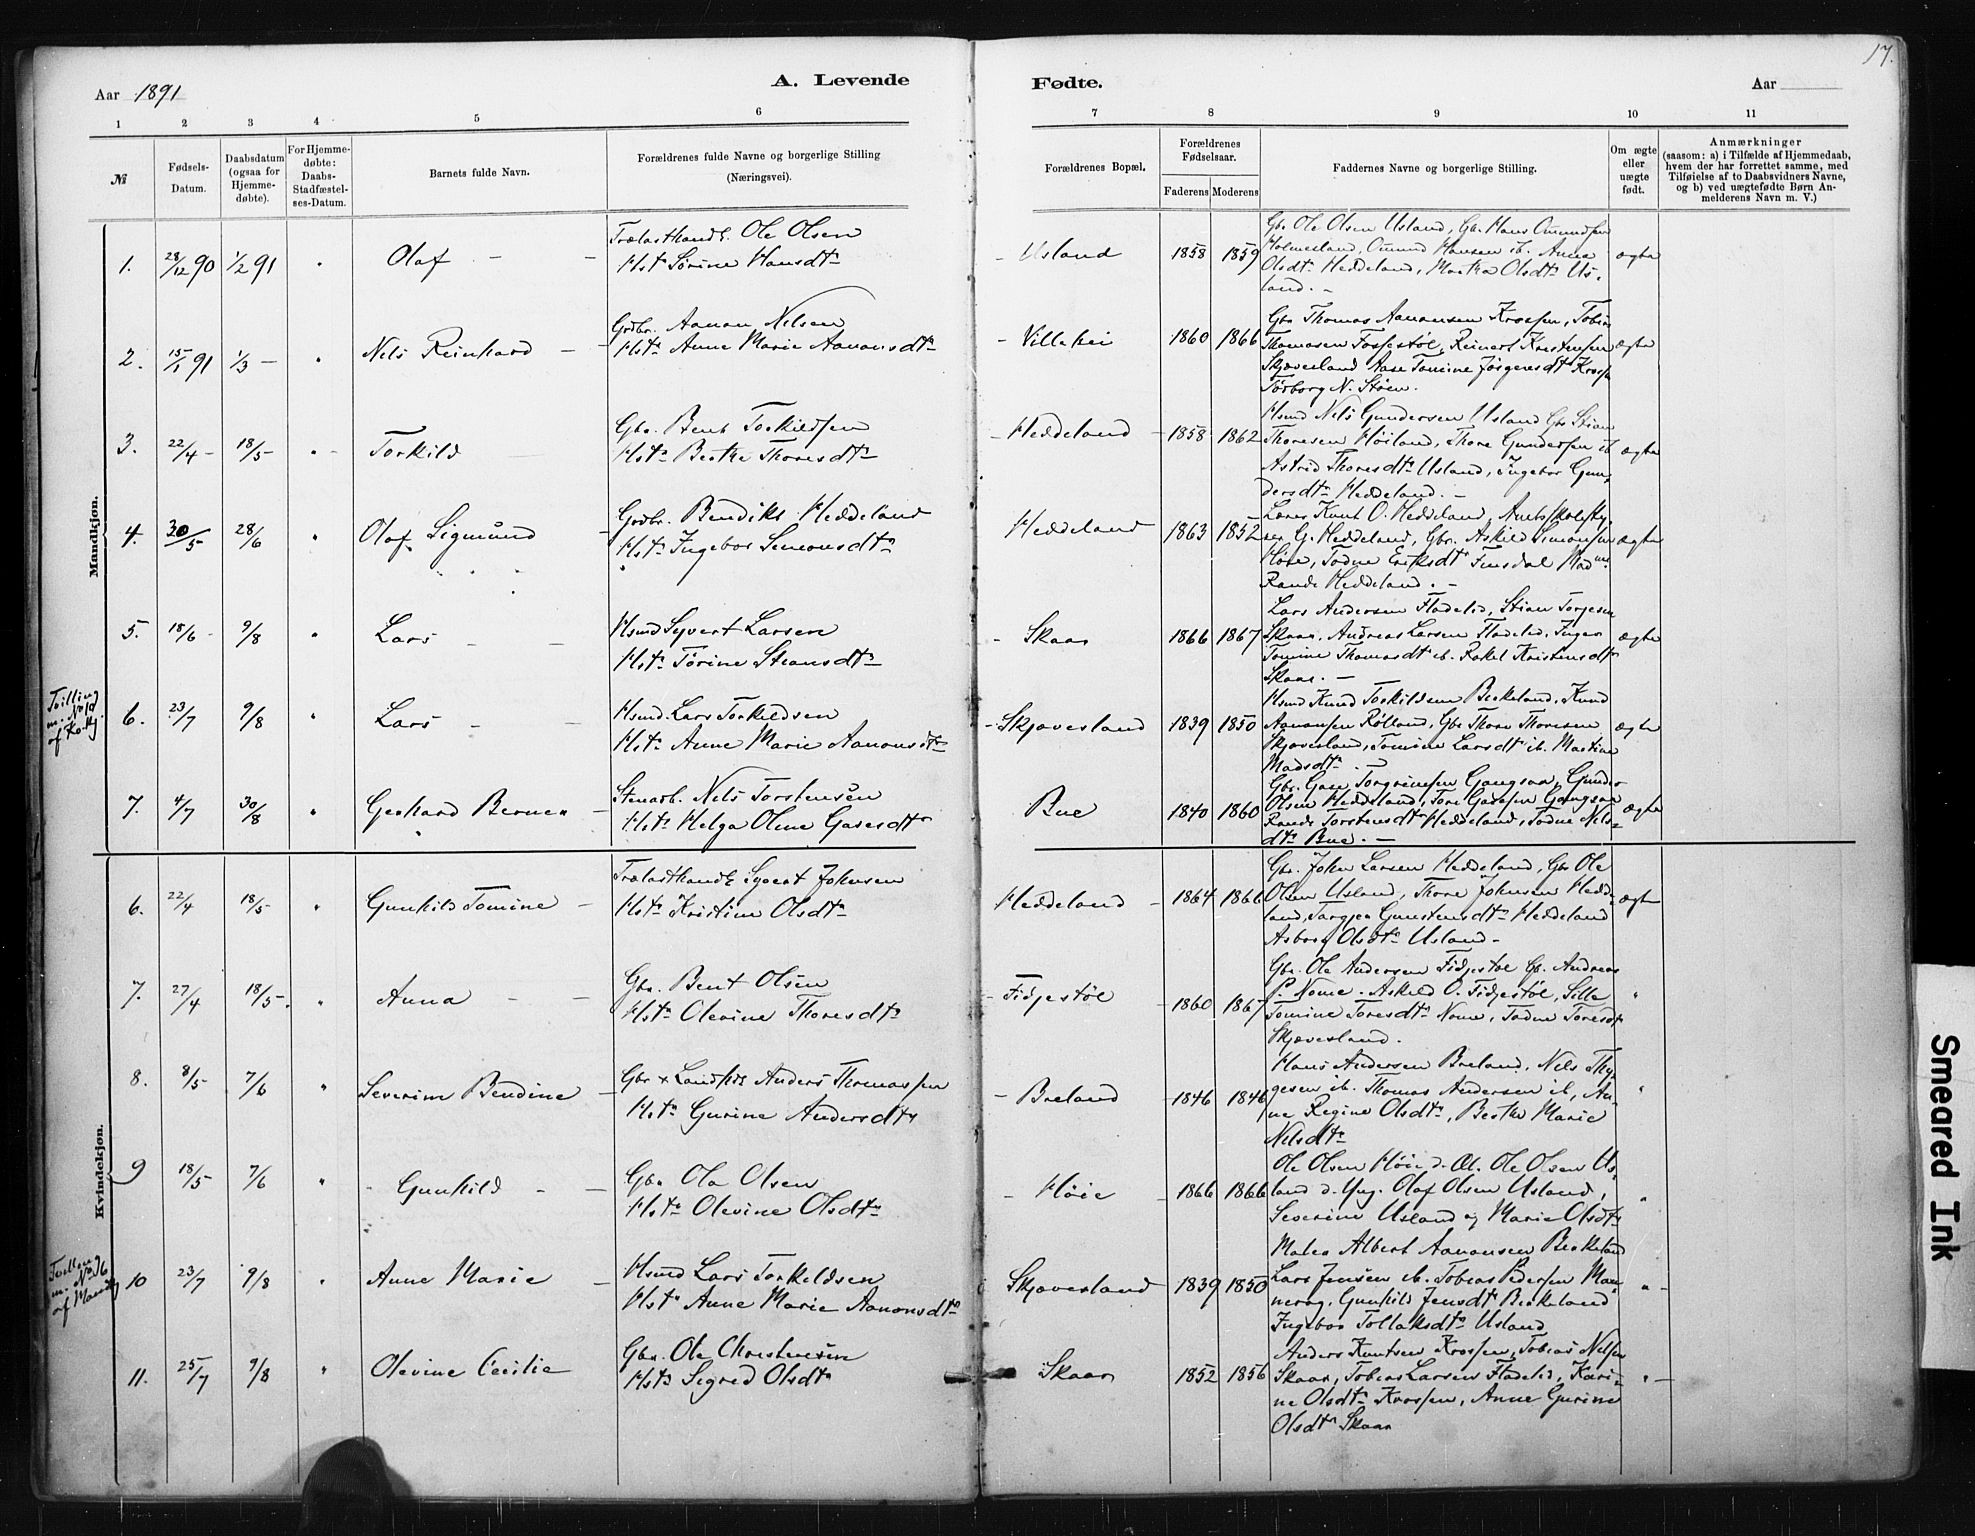 17.
Aar 1891
A. Levende
Fødte.
Aar
1 2 3 4 5 6 7 8 9 10 11
№
Fødsels-Datum.
Daabsdatum (ogsaa for Hjemme-døbte).
For Hjemme-døbte: Daabs-Stadfæstel-ses-Datum.
Barnets fulde Navn.
Forældrenes fulde Navne og borgerlige Stilling
(Næringsvei).
Forældrenes Bopæl.
Forældrenes Fødselsaar.
Faderens Moderens
Faddernes Navne og borgerlige Stilling.
Om ægte eller uægte født.
Anmærkninger
(saasom: a) i Tilfælde af Hjemmedaab,
hvem der har forrettet samme, med
Tilføielse af to Daabsvidners Navne,
og b) ved uægtefødte Børn An-
melderens Navn m. V.)
Mandkjøn.
1. 28/12 90 1/2 91 " Olaf - -
Trælasthandl. Ole Olsen
Hst. Sørine Hansdtr
- Usland 1858 1859
Gbr. Ole Olsen Usland, Gb. Hans Omundsen
Holmesland, Omund Hansen ib. Anna
Olsdtr Heddeland, Martha Olsdtr Us-
land. -
ægte
2. 15/1 91 1/3 - " Nils Reinhard -
Grdbr. Aanon Nilsen
Hstr Anne Marie Aanonsdtr
- Villehei 1860 1866
Gbr Thomas Aanonsen Krossen, Tobias
Thomasen Fossestøl, Reinert Kristensen
Skjævesland Aase Tomine Jørgensdt Krossen
Tørborg N. Støen.
ægte
3. 22/4 - 18/5 - " - Torkild
Gbr. Bent Torkildsen
Hstr Berthe Thoresdtr
- Heddeland - 1858 1862
Hsmd Nils Gundersen Usland Gbr Stian
Thoresen Høiland, Thore Gundersen ib
Astrid Thoresdtr Usland, Ingebor Gun-
dersdtr Heddeland. -
ægte
4. 30/5 28/6 " Olaf Sigmund -
Grdbr. Bendiks Heddeland
Hstr Ingebor Simonsdtr
Heddeland 1863 1852
Lærer Knut O. Heddeland, Amtsskolesty-
rer G. Heddeland, Gbr. Askild Simonsen
Høie, Todne Eriksdt Finsdal Mad
Rande Heddeland. -
ægte
5. 18/6 - 9/8 " Lars - -
Hsmd Syvert Larsen
Hstr Tørine Stiansdtr
- Skaar 1866 1867
Lars Andersen Fladelid, Stian Torjesen
Skaar, Andreas Larsen Fladelid, Inger
Tomine Thomasdt ib. Rakel Kristensdtr
Skaar. -
ægte
Tvilling
m. No 10
af Kvkj.
6. 23/7 9/8 " Lars - -
Hsmd. Lars Torkildsen
Hstr Anne Marie Aanonsdtr
- Skjævesland 1839 1850
Hsmd Knud Torkildsen Birkeland, Knud
Aanonsen Røiland, Gbr Thore Thoresen
Skjævesland, Tomine Larsdt ib. Martine
Madsdtr. -
ægte
7. 4/7 30/8 " Gerhard Berner -
Stenarb. Nils Torstensen
Hstr Helga Oline Gasesdtr
Bue 1840 1860
Gbr. Gase Torgrimsen Gangsaa, Gunder
Olsen Heddeland, Tore Gasesen Gangsaa
Rande Torstensdtr Heddeland, Todne Nils-
dtr Bue. -
ægte
Kvindekjøn.
6. 22/4 18/5 " Gunhild Tomine -
Trælasthandl. Syvert Johnsen
Hstr Kristine Olsdtr
Heddeland - 1864 1866
Gbr. John Larsen Heddeland, Gbr Ole
Olsen Usland, Thore Johnsen Hedde-
land, Targjer Gunstensdtr Heddeland
Asborg Olsdtr Usland -
ægte
7. 27/4 18/5 . " Anna - -
Gbr. Bent Olsen
Hstr Olevine Thoresdtr
- Fidjestøl - 1860 1867
Gbr. Ole Andersen Fidjestøl Gb. Andreas
P. Nome. Askild O. Fidjestøl, Sille
Tomine Toresdtr Nome, Todne Toresdt
Skjævesland.
"
8. 8/5 7/6 " Severine Bendine -
Gbr & Landhdl Anders Thomassen
Hstr Gurine Andersdtr
- Breland - 1846 1846
Hans Andersen Breland, Nils Thy-
gesen ib. Thomas Andersen ib, An-
ne Regine Olsdtr, Berthe Marie
Nilsdtr
"
9 18/5 7/6 " Gunhild - -
Gbr Ola Olsen
Hstr Olevine Olsdtr
- Høie - 1866 1866
Ole Olsen Høie d. Æl. Ole Olsen Us-
land d. Yng. Olaf Olsen Usland,
Severine Usland og Marie Olsdtr
"
Tvilling
m. No 6
af Mandkj
10 23/7 9/8 " Anne Marie -
Hsmd Lars Torkeldsen
Hstr Anne Marie Aanonsdtr
Skjævesland 1839 1850
Maler Albert Aanonsen Birkeland
Lars Jensen ib. Tobias Pedersen Man-
nerog, Gunhild Jensdtr Birkeland
Ingebor Tollaksdtr Usland
" -
11. 25/7 9/8 " Olevine Cecilie
Gbr. Ole Christensen
Hstr Sigred Olsdtr
Skaar 1852 1856
Anders Knutsen Krossen, Tobias Nilsen
Skaar, Tobias Larsen Fladelid, Kari-
ne Olsdtr Krossen, Anne Gurine
Olsdtr Skaar
" -
Smeared Ink